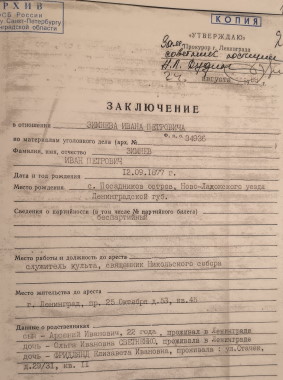 АРХИВ
КОПИЯ
"УТВЕРЖДАЮ"
Прокурор г. Ленинграда
августа
ЗАКЛЮЧЕНИЕ
в отношении ЗИМНЕВА ИВАНА ПЕТРОВИЧА
по материалам уголовного дела (арх. №
Фамилия, имя, отчество ЗИМНЕВ
ИВАН ПЕТРОВИЧ
Дата и год рождения 12.09.1877 г.
Место рождения с. Посадников остров, Ново-Ладожского уезда
Ленинградской губ.
Сведения о партийности (в том числе № партийного билета)
беспартийный
Место работы и должность до ареста
служитель культа, священник Никольского собора
Место жительства до ареста
г. Ленинград, пр. 25 Октября д.53, кв.45
Данные о родственниках
сын - Иванович, 22 года, проживал в Ленинграде
дочь - Ольга Ивановна проживала в Ленинграде
дочь - Елизавета Ивановна, проживала : ул.
д.29/31, кв. 11